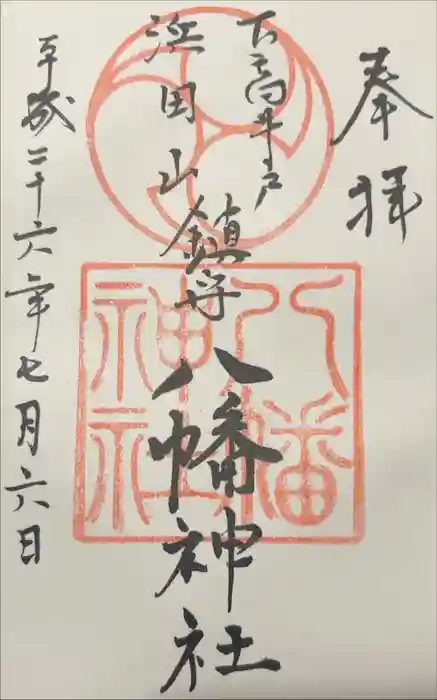 奉拝
下高井戸
浜田山
鎮守
八幡神社
八幡神社
平成二十六年七月六日